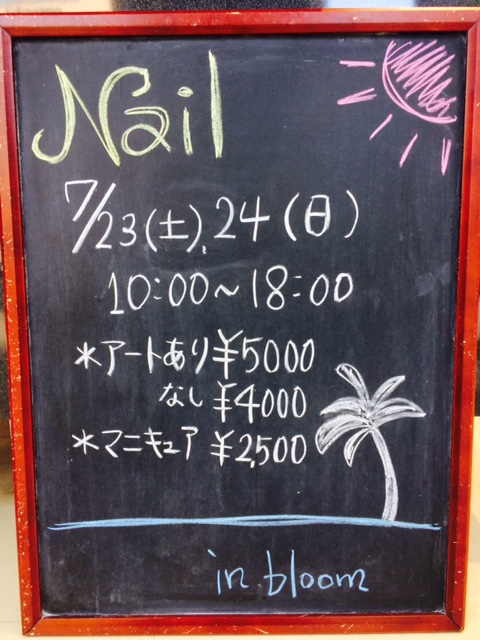 Nail
7/23(土), 24(日)
10:00～18:00
*アートあり ¥5000
なし ¥4000
*マニキュア ¥2,500
in bloom